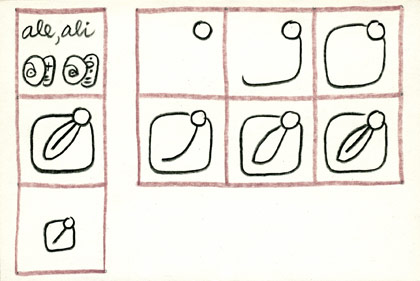 ale, ali